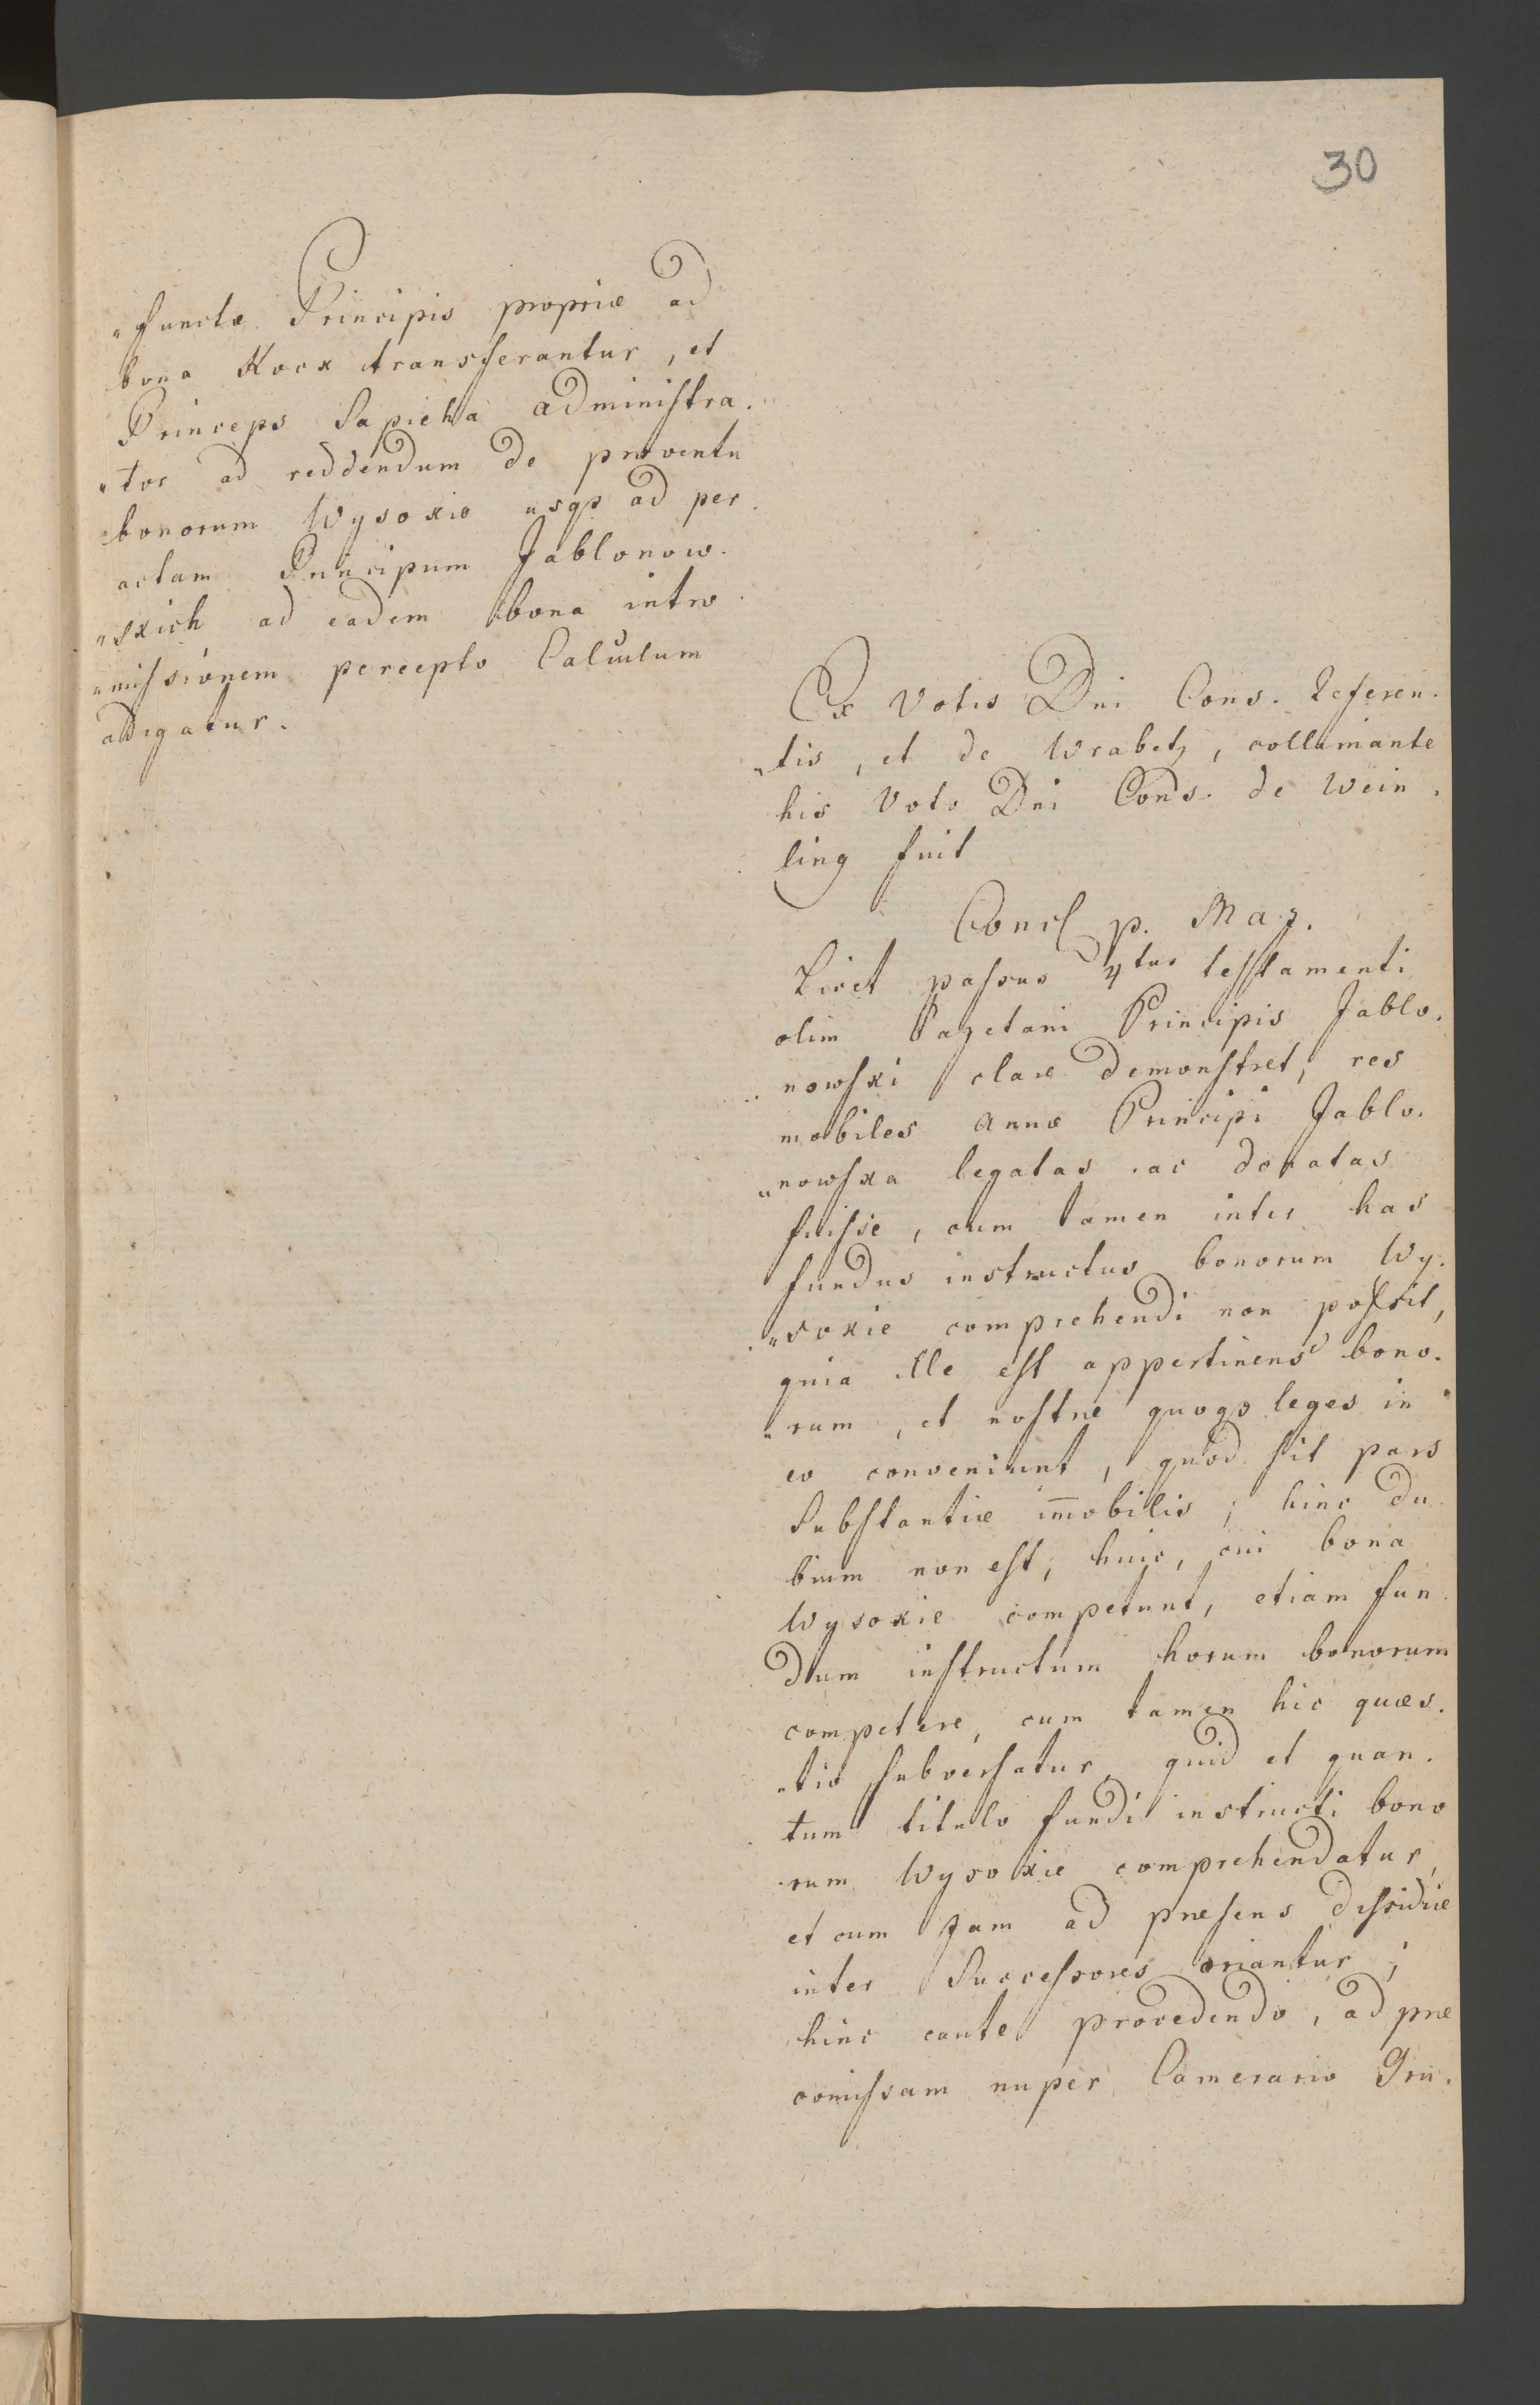 30
„functæ Principis propriæ ad
bona Kock transferantur, et
Princeps Sapieha administra.
„tor ad reddendum de proventu
bonorum Wysokie usqs ad per.
actam Principum Jablonow.
„skich ad eadem bona intro
„missionem percepto Calculum
adigatur.
Ex Votis Dni Cons. Referen.
„tis, et de Wrabetz, collimante
his Voto Dni Cons. de Wein.
ling fuit
Concl p. Maj.
Licet passus 4tus testamenti
olim Cajetani Principis Jablo.
nowski clare demonstret, res
mobiles Annæ Principi Jablo.
„nowska legatas ac donatas
fuisse, cum tamen inter has
fundus instructus bonorum Wy.
„sokie comprehendi non possit,
quia ille est appertinens bono.
„rum, et nostræ quoqs leges in
eo conveniunt, quod sit pars
Substantiæ im̅obilis; hinc du
bium non est, huic, cui bona
Wysokie competunt, etiam fun.
dum instructum horum bonorum
competere, cum tamen hic quæs.
„tio subversatur, quid et quan.
tum titulo fundi instructi bono
rum Wysokie comprehendatur,
et cum jam ad præsens dissidiæ
inter Successores oriantur;
hinc caute procedendo, ad præ
comissam nuper Camerario Gru.